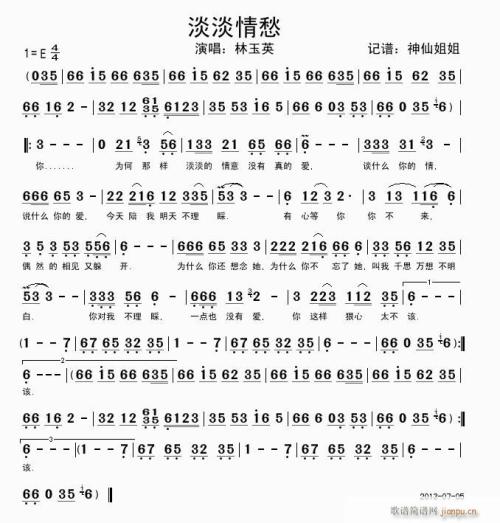 淡淡情愁
1=E 4/4 演唱：林玉英 记谱：神仙姐姐
(035 | 66 i5 66 635 | 66 i5 66 635 | 66 i5 66 i5 | 66 i5 62 35 |
66 i6 2 - | 32 12 6135 6123 | 35 i6 5 35 | 66 03 53 | 66 0 35 6) |
||: 3 - - - | 0 21 3 56 | 133 21 65 61 | 6 - - - | 133 31 3 21 |
你....... 为何那样 淡淡的情意没有真的爱， 谈什么你的情，
666 65 3 - | 222 216 12 35 | 53 - - - | 6 12 32· | 3 3 - - |
说什么你的爱，今天陪我明天不理 睬． 有心等你 你不来，
35 35 53 556 | 6 - - - | 666 65 63 33 | 222 216 66 6 | 33 56 12 13 |
偶然的相见又躲 开． 为什么你还想念她，为什么你不 忘了她，叫我千思万想不明
53 3 - - | 333 56 5 - | 666 13 3 - | 3 223 112 2 | 6 - - - |
白． 你对我不理睬， 一点也没有爱， 你这样狠心太不该．
(1 - - 7 | 67 65 32 35 | 66 i5 66 i5 | 66 i5 62 35 | 66 0 35 6) :||
6 - - - | (66 i5 66 635 | 66 i5 66 635 | 66 i5 66 i5 | 66 i5 62 35 |
该．
66 i6 2 - | 32 12 6135 6123 | 35 i6 5 35 | 66 03 53 | 66 0 35 6) :||
6 - - - | (1 - - 7 | 67 65 32 35 | 67 65 32 35 | 67 65 32 35 |
该．
66 0 35 6) ||
2012-07-05
歌谱简谱网
jianpu.cn